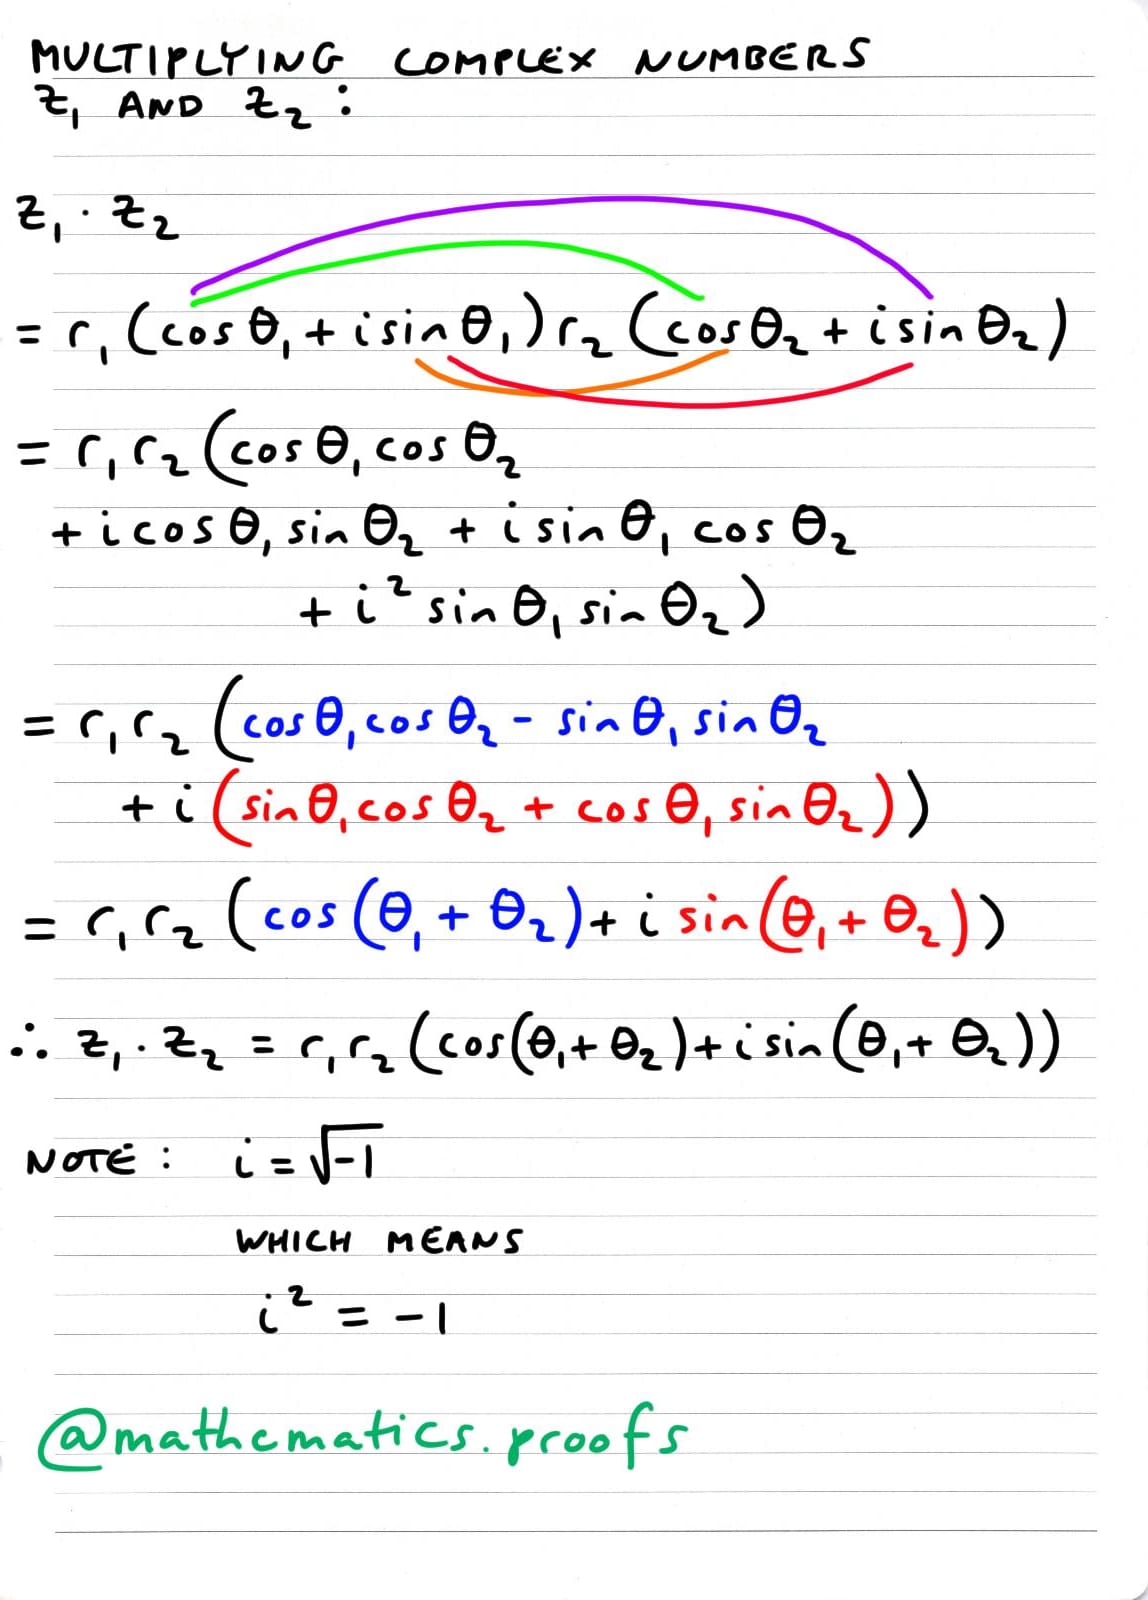 MULTIPLYING COMPLEX NUMBERS
z₁ AND z₂ :
z₁ · z₂
= r₁ (cos θ₁ + i sin θ₁) r₂ (cos θ₂ + i sin θ₂)
= r₁ r₂ (cos θ₁ cos θ₂
+ i cos θ₁ sin θ₂ + i sin θ₁ cos θ₂
+ i² sin θ₁ sin θ₂)
= r₁ r₂ (cos θ₁ cos θ₂ - sin θ₁ sin θ₂
+ i (sin θ₁ cos θ₂ + cos θ₁ sin θ₂))
= r₁ r₂ (cos (θ₁ + θ₂) + i sin (θ₁ + θ₂))
∴ z₁ · z₂ = r₁ r₂ (cos(θ₁ + θ₂) + i sin (θ₁ + θ₂))
NOTE : i = √-1
WHICH MEANS
i² = -1
@mathematics.proofs